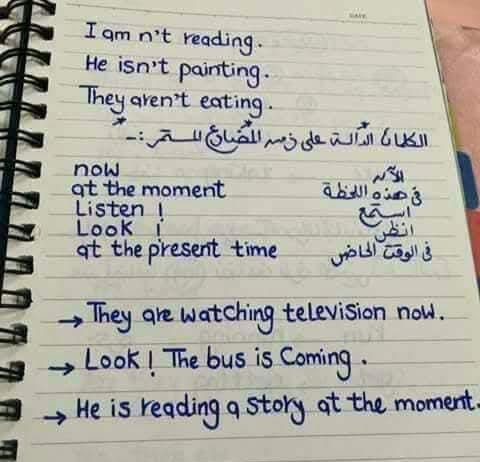 DATE
I am n't reading.
He isn't painting.
They aren't eating.
الكلمات الدالة على زمن المضارع المستمر :-
now الآن
at the moment في هذه اللحظة
Listen ! استمع
Look ! انظر
at the present time في الوقت الحاضر
→ They are watching television now.
→ Look! The bus is Coming.
→ He is reading a story at the moment.